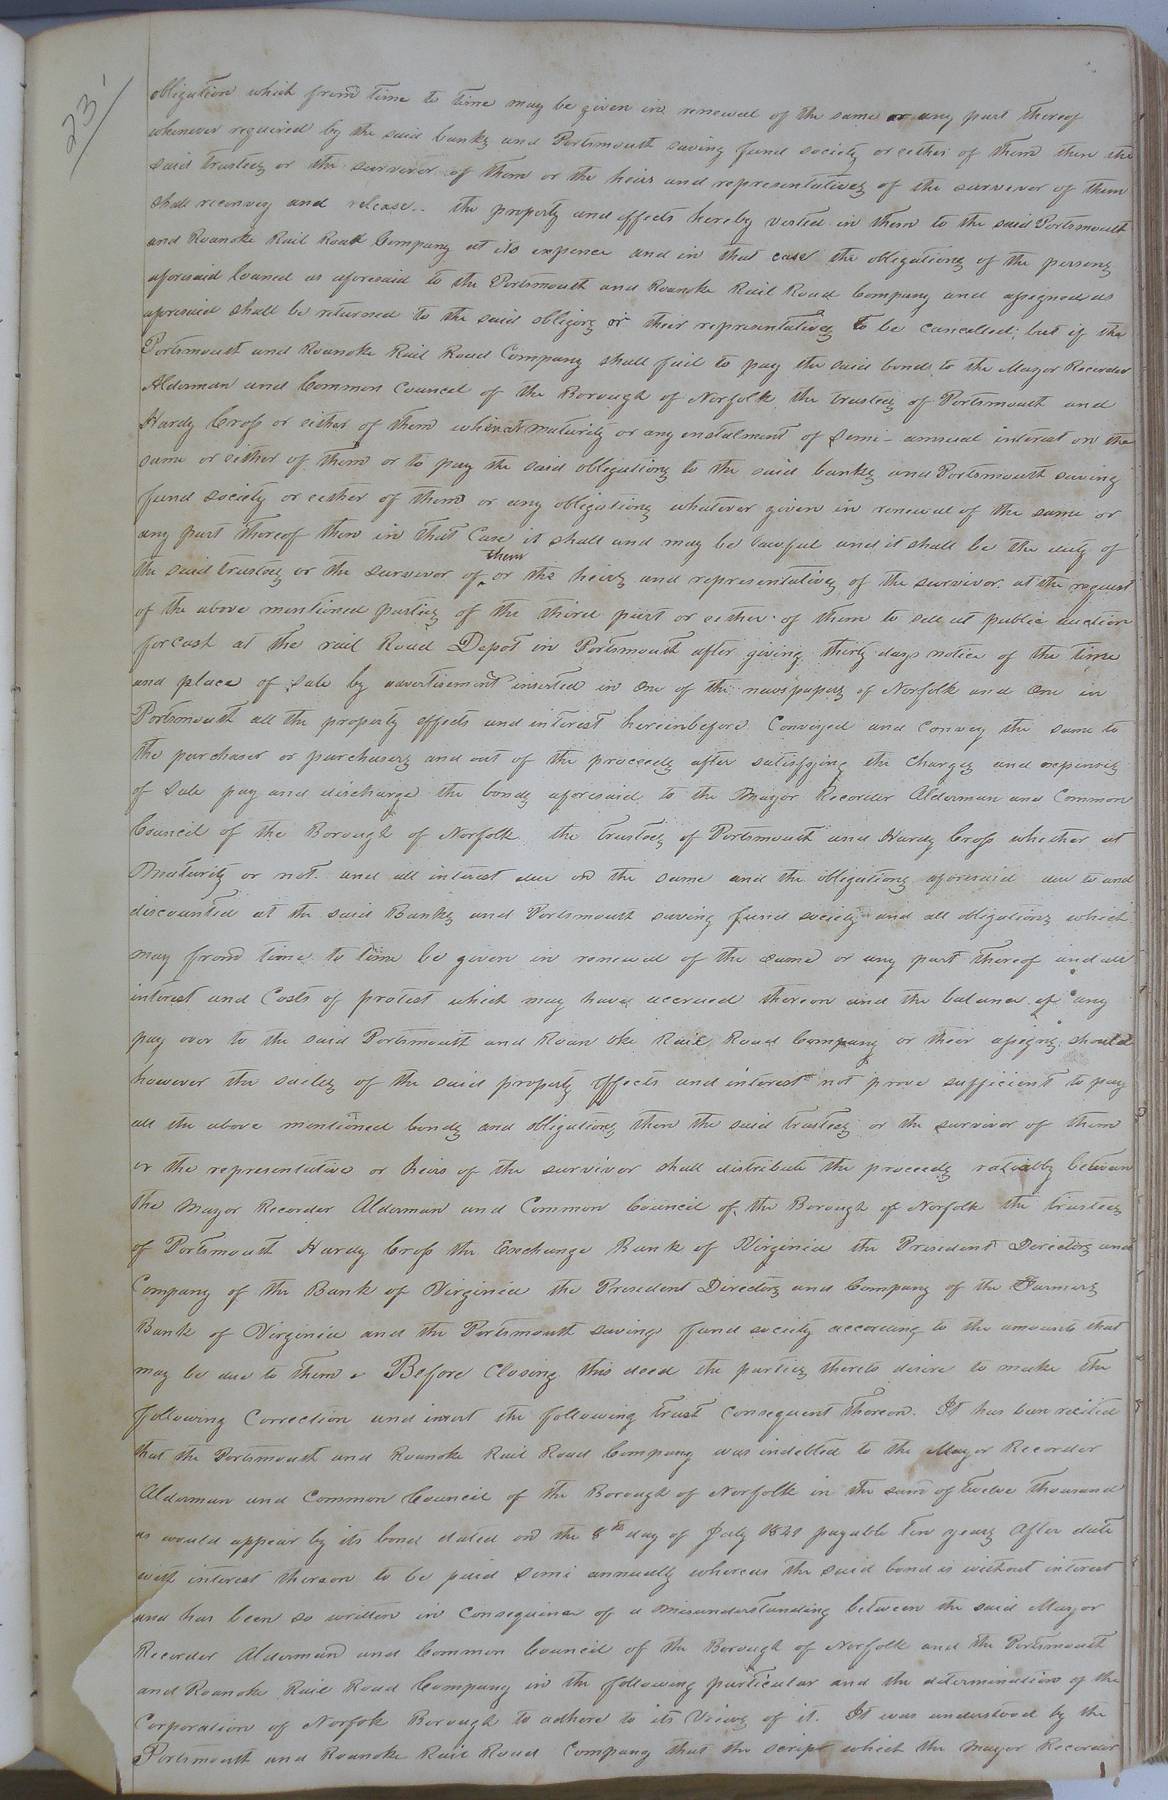 23
obligation which from time to time may be given in renewal of the same or any part thereof
whenever required by the said banks and Portsmouth saving fund society or either of them then the
said trustees or the survivor of them or the heirs and representatives of the survivor of them
shall reconvey and release.. the property and effects hereby vested in them to the said Portsmouth
and Roanoke Rail Road Company at its expence and in that case the obligations of the persons
aforesaid loaned as aforesaid to the Portsmouth and Roanoke Rail Road Company and assigned as
aforesaid shall be returned to the said obligors or their representatives to be cancelled; but if the
Portsmouth and Roanoke Rail Road Company shall fail to pay the said bonds to the Mayor Recorder
Alderman and Common Council of the Borough of Norfolk the trustees of Portsmouth and
Hardy Cross or either of them when at maturity or any enstalment of semi-annual interest on the
same or either of them or to pay the said obligations to the said banks and Portsmouth saving
fund society or either of them or any obligations whatever given in renewal of the same or
any part thereof then in that case it shall and may be lawful and it shall be the duty of
the said trustees or the survivor of them or the heirs and representatives of the survivor at the request
of the above mentioned parties of the third part or either of them to sell at public auction
for cash at the rail Road Depot in Portsmouth after giving thirty days notice of the time
and place of sale by advertisement inserted in one of the newspapers of Norfolk and one in
Portsmouth all the property effects and interest hereinbefore Conveyed and convey the same to
the purchaser or purchasers and out of the proceeds after satisfying the charges and expences
of sale pay and discharge the bonds aforesaid to the Mayor Recorder Alderman and Common
Council of the Borough of Norfolk the trustees of Portsmouth and Hardy Cross whether at
maturity or not and all interest due on the same and the obligations aforesaid due to and
discounted at the said Banks and Portsmouth saving fund society and all obligations which
may from time to time be given in renewal of the same or any part thereof and all
interest and Costs of protest which may have accrued thereon and the balance if any
pay over to the said Portsmouth and Roan oke Rail Road Company or their assigns should
however the sales of the said property effects and interest not prove sufficient to pay
all the above mentioned bonds and obligations, then the said trustees or the survivor of them
or the representative or heirs of the survivor shall distribute the proceeds ratably between
the Mayor Recorder Alderman and Common Council of the Borough of Norfolk the trustees
of Portsmouth Hardy Cross the Exchange Bank of Virginia the President Directors and
Company of the Bank of Virginia the President Directors and Company of the Farmers
Bank of Virginia and the Portsmouth saving fund society according to the amounts that
may be due to them. Before Closing this deed the parties thereto desire to make the
following Correction and insert the following trust consequent thereon. It has been recited
that the Portsmouth and Roanoke Rail Road Company was indebted to the Mayor Recorder
Alderman and Common Council of the Borough of Norfolk in the sum of twelve thousand
as would appear by its bond dated on the 8th day of July 1841 payable ten years after date
with interest thereon to be paid semi annually whereas the said bond is without interest
and has been so written in Consequence of a misunderstanding between the said Mayor
Recorder Alderman and Common Council of the Borough of Norfolk and the Portsmouth
and Roanoke Rail Road Company in the following particular and the determination of the
Corporation of Norfolk Borough to adhere to its views of it. It was understood by the
Portsmouth and Roanoke Rail Road Company that the script which the Mayor Recorder